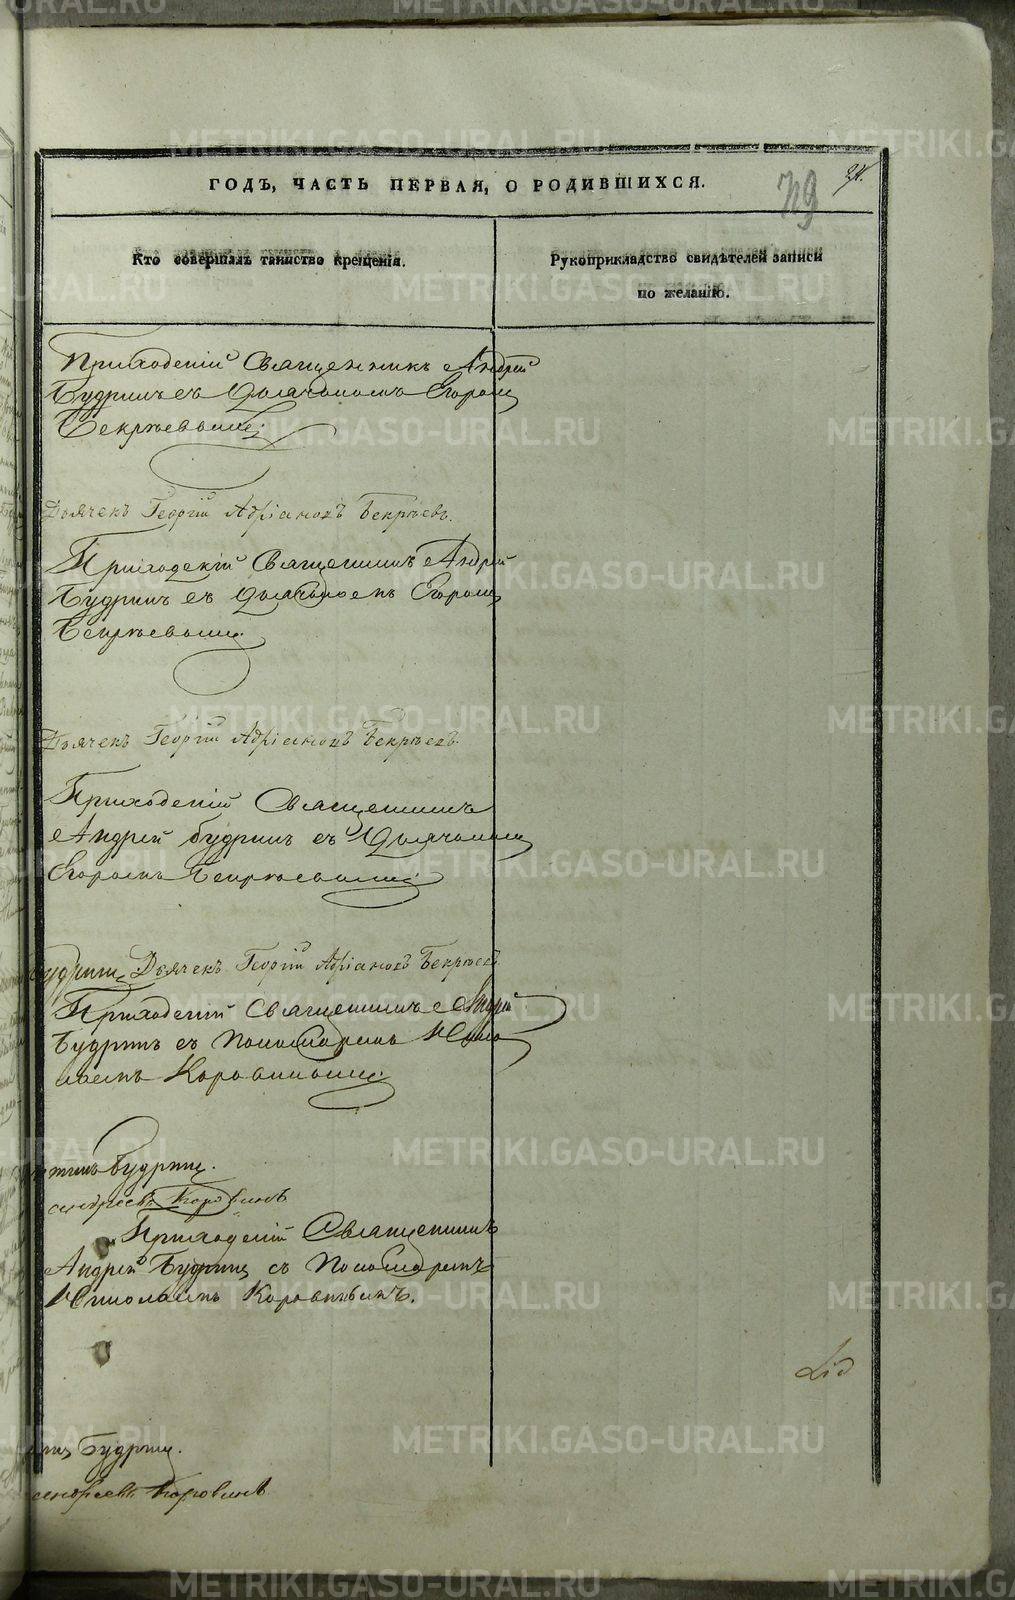 ГОДЪ, ЧАСТЬ ПЕРВАЯ, О РОДИВШИХСЯ.
79
Кто совершалъ таинство крещенія.
Рукоприкладство свидѣтелей записи
по желанію.
Приходскій Священникъ Андрей
Будринъ съ Дьячкомъ Егоромъ
Бекрѣевымъ.
Дьячекъ Георгій Адріановъ Бекрѣевъ.
Приходскій Священникъ Андрей
Будринъ съ Дьячкомъ Егоромъ
Бекрѣевымъ.
Дьячекъ Георгій Адріановъ Бекрѣевъ.
Приходскій Священникъ
Андрей Будринъ съ Дьячкомъ
Егоромъ Бекрѣевымъ.
Будринъ Дьячекъ Георгій Адріановъ Бекрѣевъ
Приходскій Священникъ Андрей
Будринъ съ Пономаремъ Нико
лаемъ Коровинымъ.
Будринъ.
Андреевъ Коровинъ
Приходскій Священникъ
Андрей Будринъ съ Пономаремъ
Николаемъ Коровинымъ.
Будринъ.
Андреевъ Коровинъ
METRIKI.GASO-URAL.RU